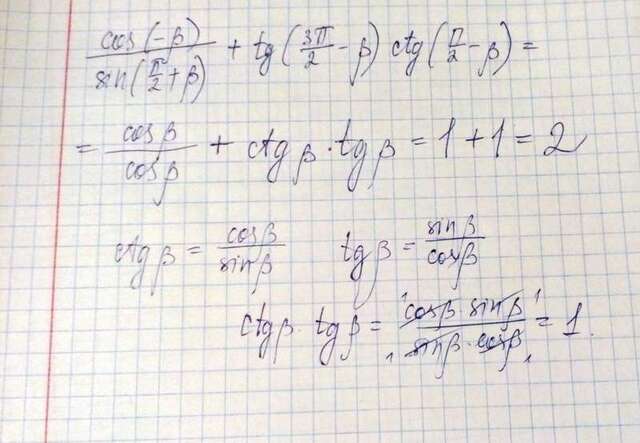 cos(-β)/sin(π/2+β) + tg(3π/2-β) ctg(π/2-β) =
= cosβ/cosβ + ctgβ·tgβ = 1+1 = 2
ctgβ = cosβ/sinβ tgβ = sinβ/cosβ
ctgβ·tgβ = cosβ·sinβ/sinβ·cosβ = 1.